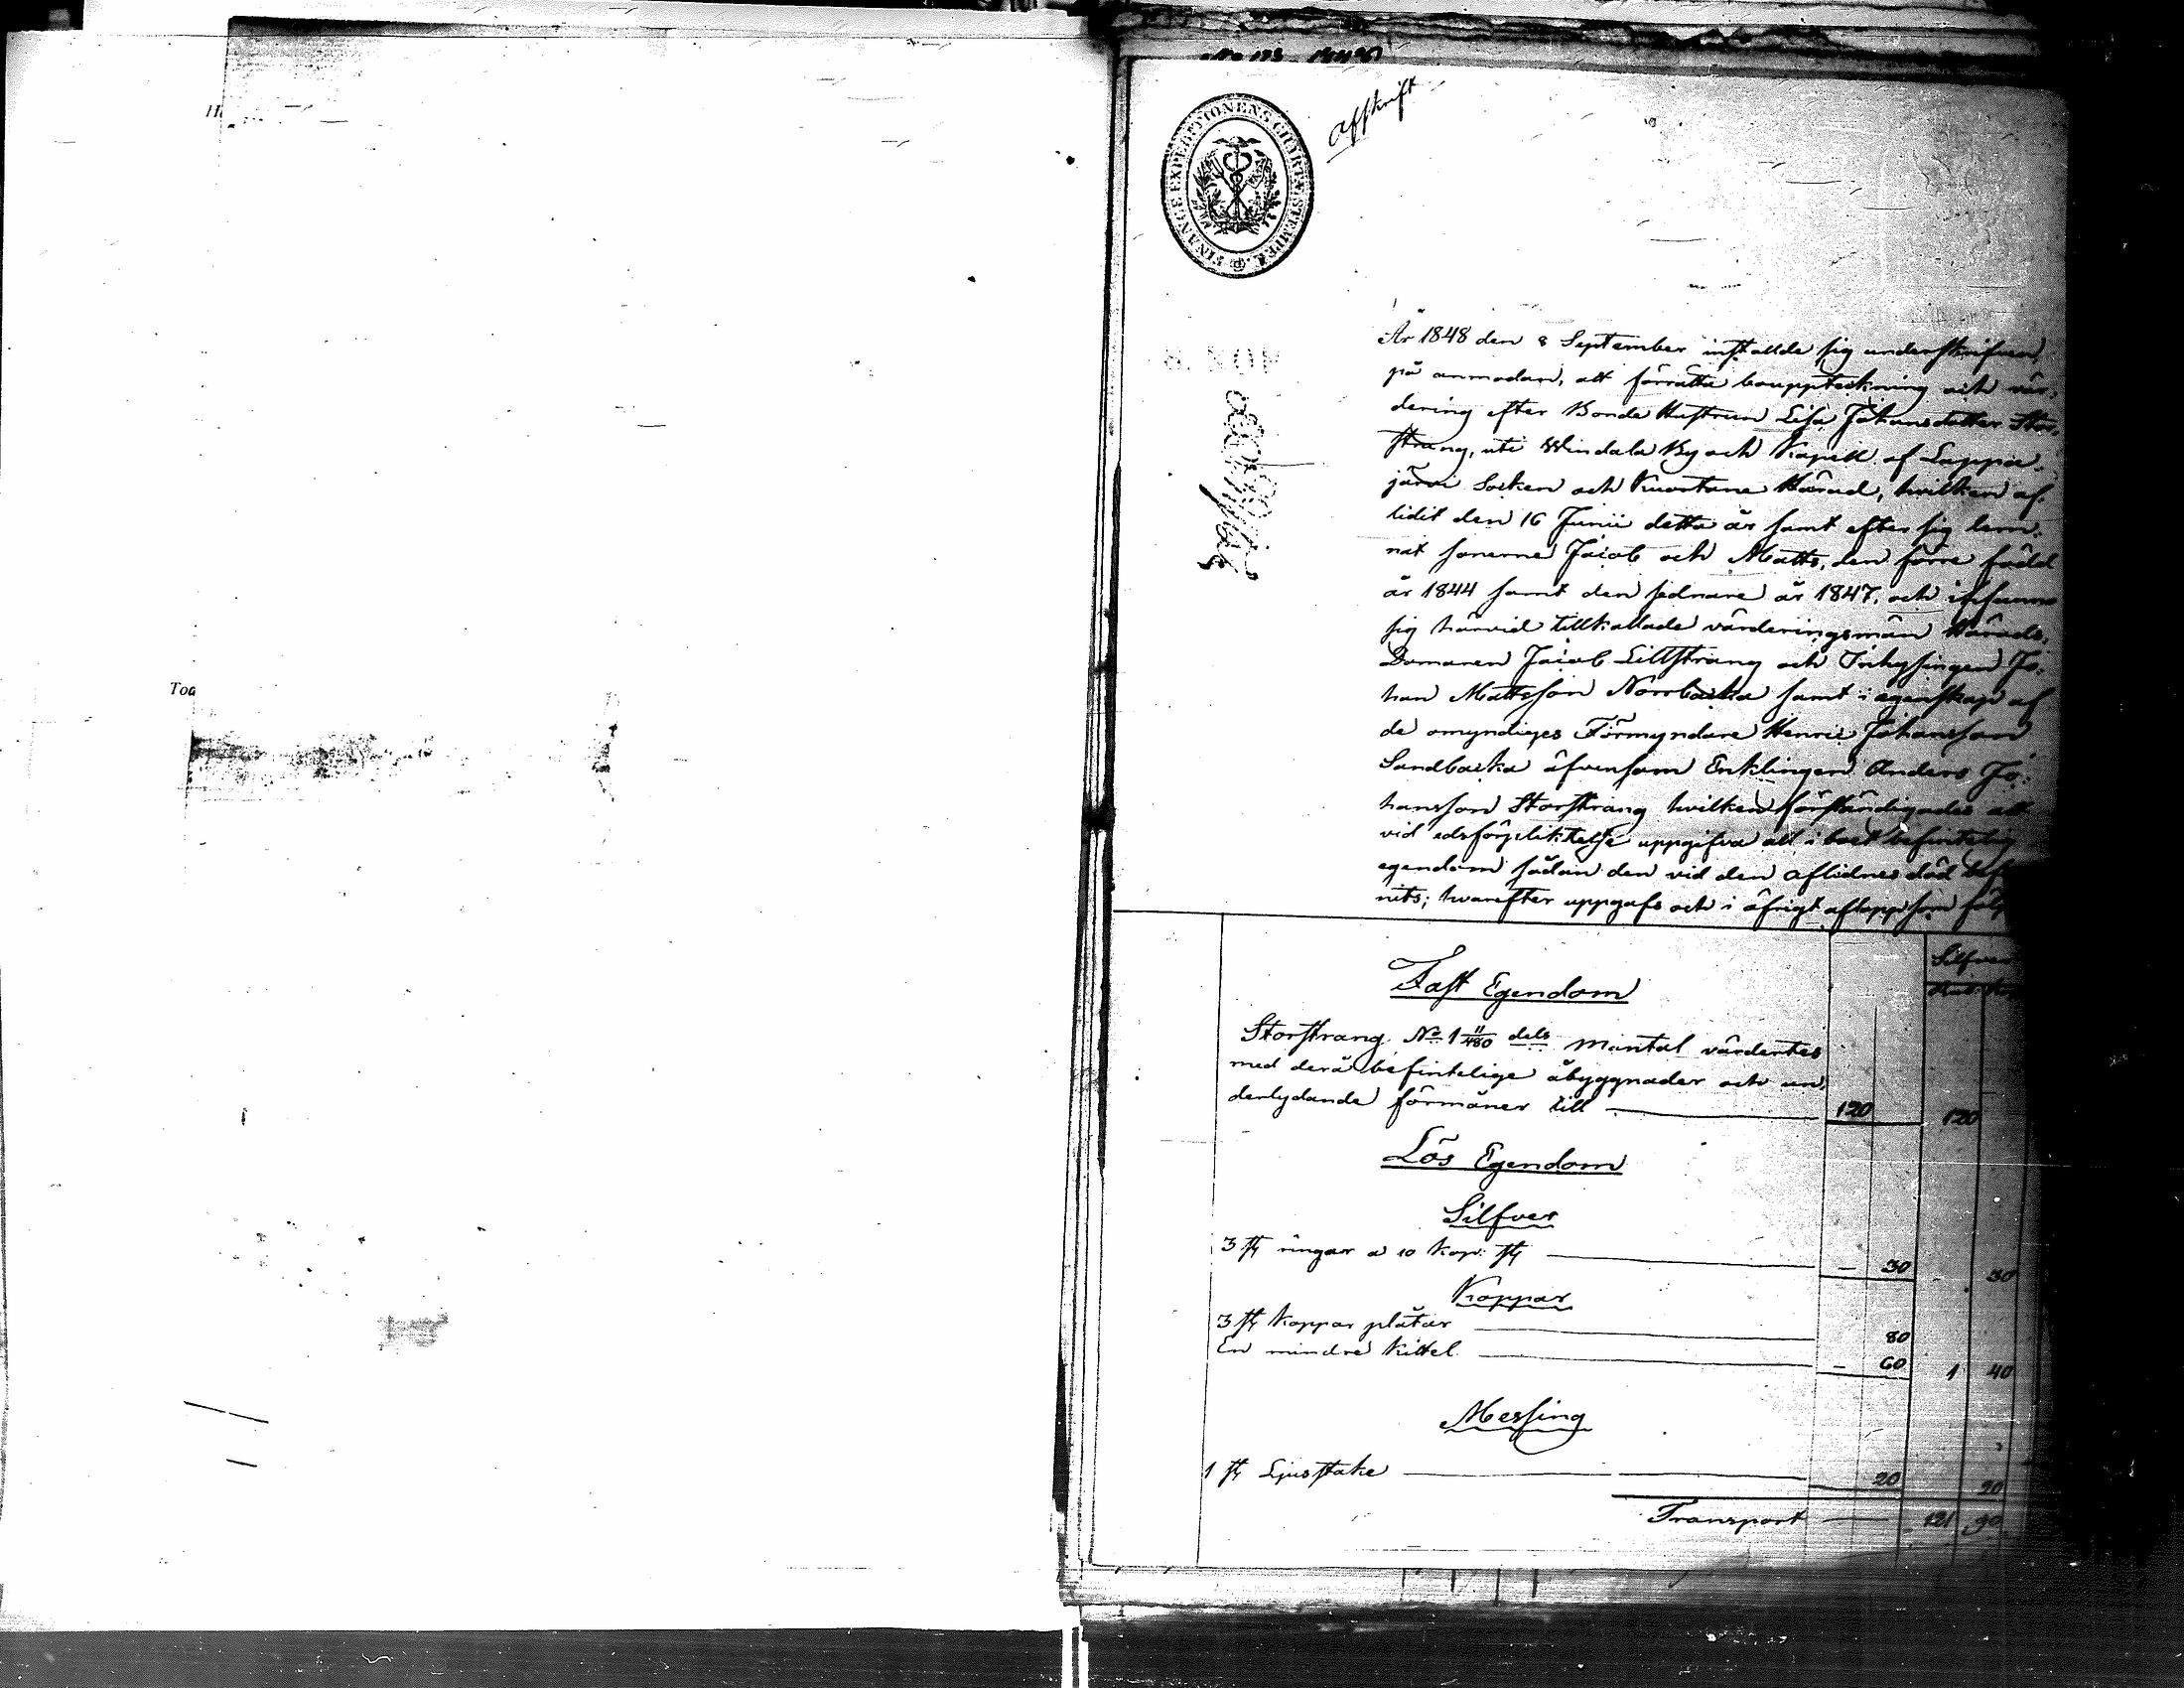 Afskrift
FINANCE EXPEDITIONENS CHARTÆ STEMPEL
8. KOP
År 1848 den 8 September inställde sig underskrifven,
på anmodan, att förrätta bouppteckning och vär-
dering efter Bonde Hustrun Lisa Johansdotter Stor-
strang, uti Windala By och Kapell af Lappa-
järvi Socken och Kuortane Härad, hvilken af-
lidit den 16 Junii detta år samt efter sig lem-
nat sönerne Jacob och Matts, den förre född
år 1844 samt den sednare år 1847, och infunno
sig härvid tillkallade värderingsmän Härads-
Domaren Jacob Lillstrang och Inhysingen Jo-
han Mattsson Norrbacka samt i egenskap af
de omyndiges Förmyndare Henric Johansson
Sandbacka äfvensom Enklingen Anders Jo-
hansson Storstrang hvilken förständigades att
vid edsförpliktelse uppgifva all i boet befintelig
egendom sådan den vid den aflidnes död
nits; hvarefter uppgafs och i öfrigt aflopp som
Silfver
Fast Egendom
Storstrang No 1 11/480 dels mantal värdertes
med derå befintelige åbyggnader och un-
derlydande förmåner till 120 120
Lös Egendom
Silfver
3 st ringar a 10 kop: st — 30 30
Koppar
3 st koppar plåtar 80
En mindre kittel — 60 1 40
Messing
1 st Ljusstake 20 20
Transport 121 90